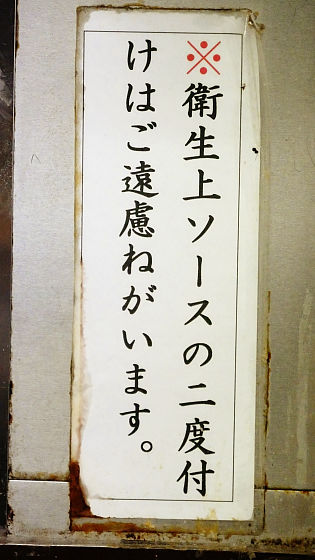 ※衛生上ソースの二度付
けはご遠慮ねがいます。